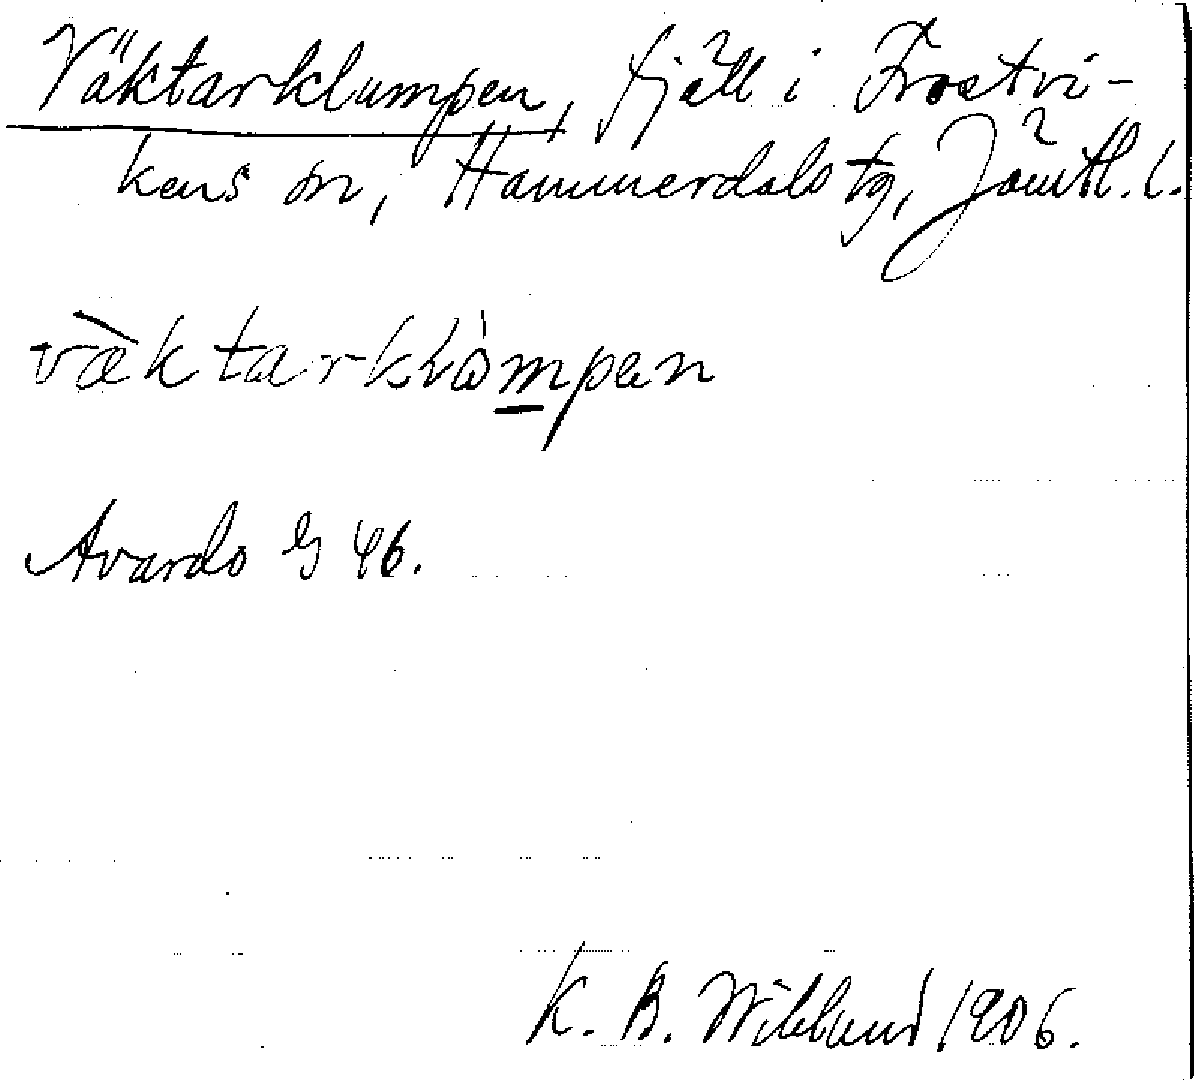 Väktarklumpen, fjäll i Frostvi-
kens sn, Hammerdals tg, Jämtl. l.
væ̀ktarklòmpen
Avardo G 46.
K. B. Wiklund 1906.